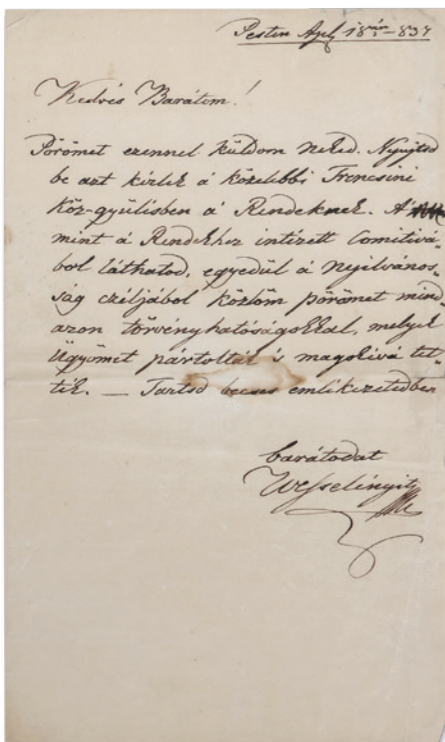 Pesten Apl. 18án – 837
Kedves Barátom!
Pörömet ezennel küldom neked. Nyújtsd
be azt kérlek á közelebbi Trencsini
Köz-gyülésben á Rendeknek. A
mint á Rendekhez intézett Comitivá-
ból láthatod, egyedül á Nyilvános-
ság czéljából közlöm pörömet mind-
azon törvényhatóságokkal, melyek
Ügyömet pártolták és magokévá tet-
ték. — Tartsd becses emlékezetedben
barátodat
Wesselényit